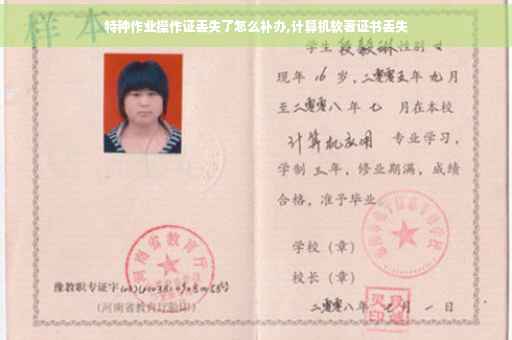 特种作业操作证丢失了怎么补办,计算机软著证书丢失
样本
学生 段毅琳 性别 女
现年 16 岁,二零零五年 九 月
至二零零八 年 七 月在本校
计算机应用 专业学习,
学制 三 年,修业期满,成绩
合格,准予毕业
学校(章)
校长(章)
二零零八年 月 一 日
河南省教育厅
豫教职专证字
(河南省教育厅验印)